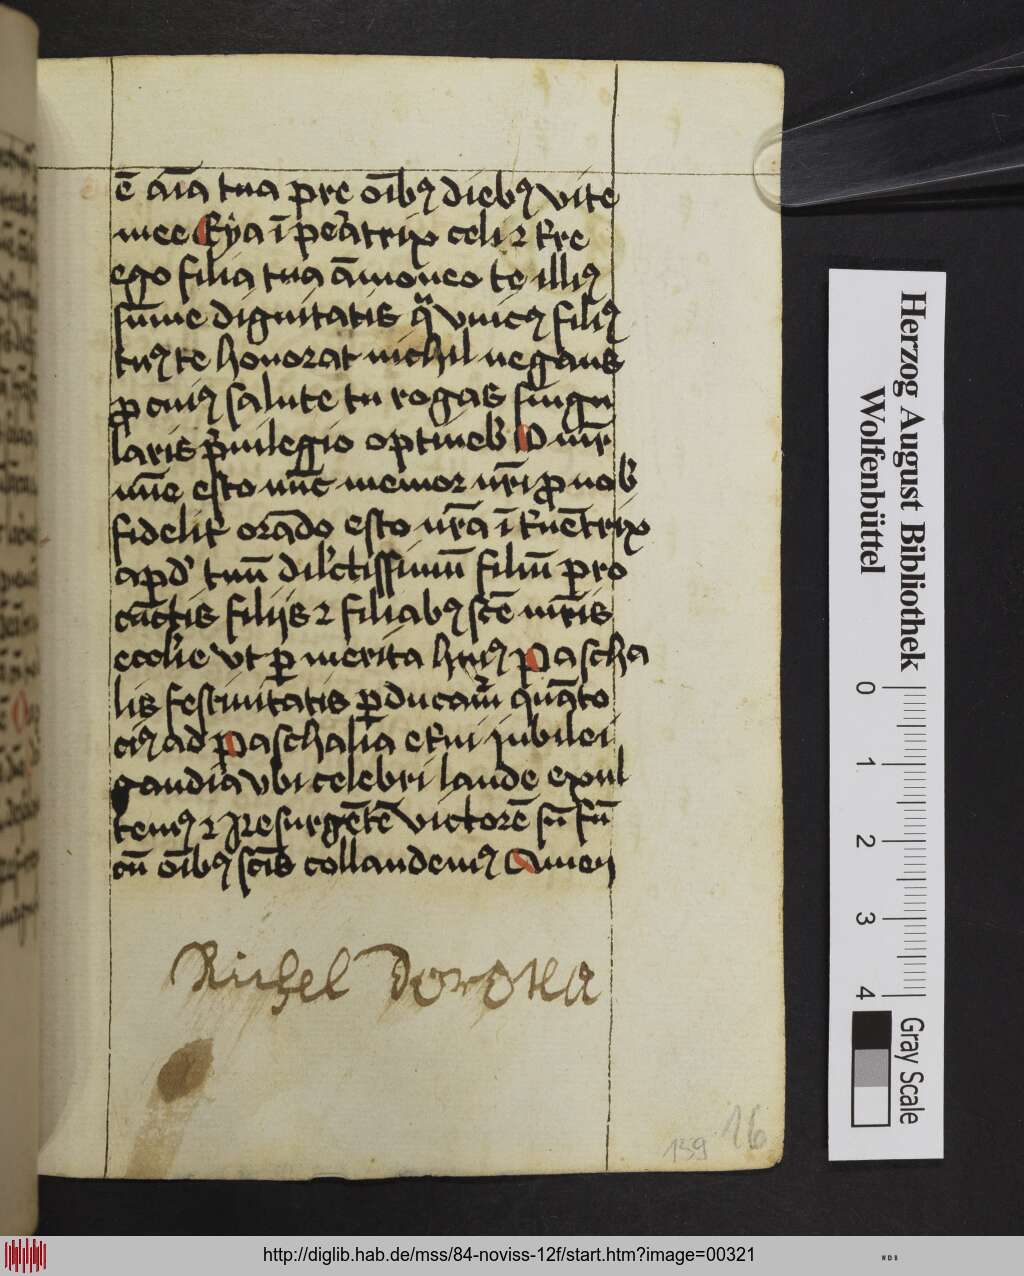 ē aīa tua pre oībꝯ diebꝯ vite
mee Eya īpeat̾rix celi ⁊ tr̄re
ego filia tua āmoneo te illiꝯ
sūme dignitatis qua vnicꝯ filiꝯ
tuꝯ te honorat nichil negans
ꝓ cuiꝯ salute tu rogas singu
laris pͥuilegio optineb̾ O
esto nūc memor nr̄i ꝓ nob̾
fidelit̾ orādo esto nr̄a īt̾uētrix
apd̾ tuū dil̾ctissimū filiū pro
cūctis filijs ⁊ filiabꝯ scē mr̄is
eccl̾ie vt ꝑ merita huiꝯ pascha
lis festiuitatis ꝑducam̾ quāto
ciꝯ ad paschalia et̾ni jubilei
gaudia vbi celebri laude exul
temꝯ ⁊ Resurgētē victorē
cū oībꝯ scīs collaudemꝯ Amen
Richel Dorothea
159 16
Herzog August Bibliothek
Wolfenbüttel
0 1 2 3 4
Gray Scale
http://diglib.hab.de/mss/84-noviss-12f/start.htm?image=00321